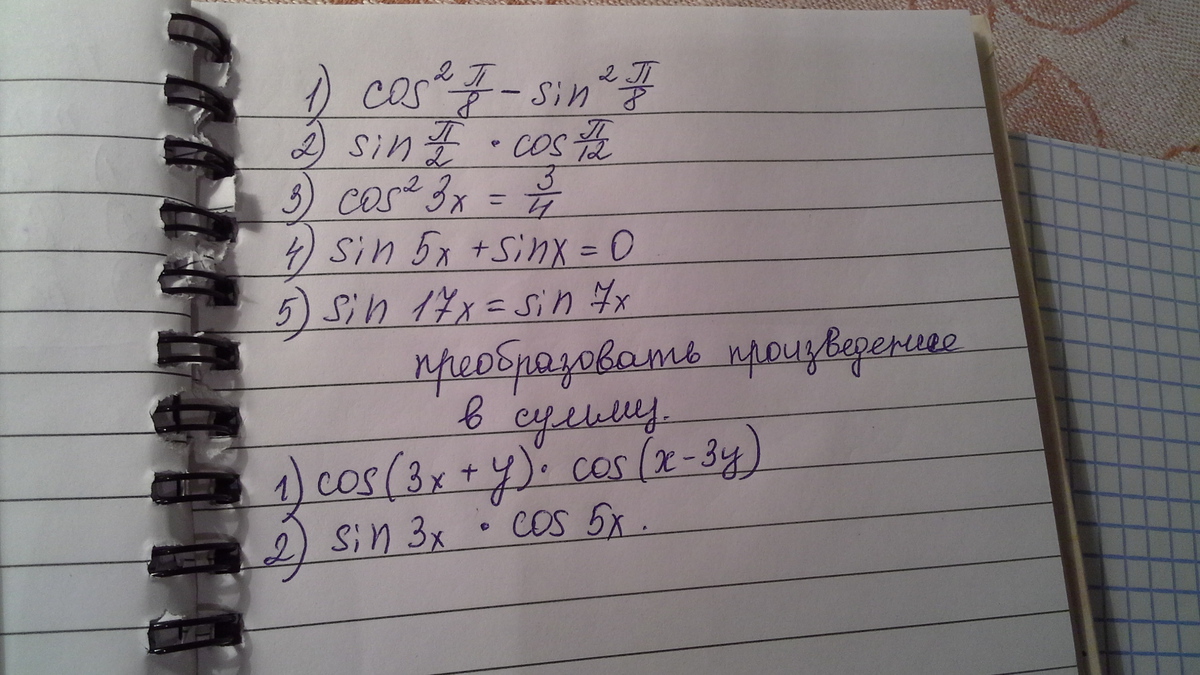 1) cos² π/8 - sin² π/8
2) sin π/2 · cos π/12
3) cos² 3x = 3/4
4) sin 5x + sin x = 0
5) sin 17x = sin 7x
преобразовать произведение
в сумму.
1) cos(3x + y) · cos(x - 3y)
2) sin 3x · cos 5x.